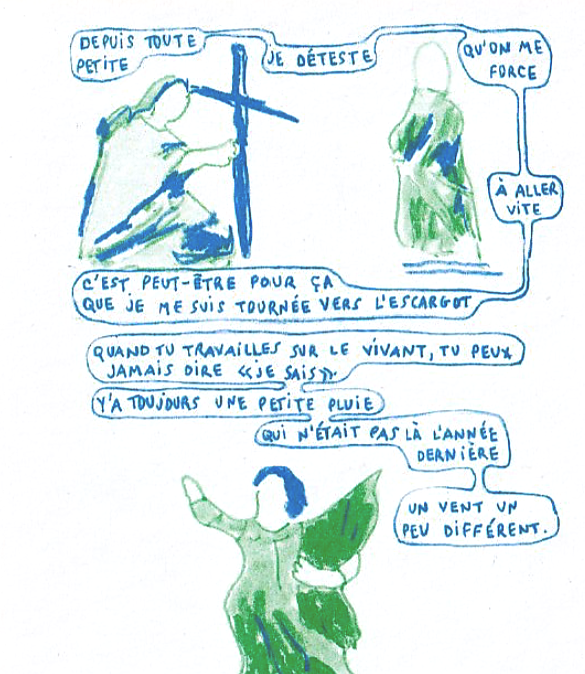 DEPUIS TOUTE
PETITE
JE DÉTESTE
QU'ON ME
FORCE
À ALLER
VITE
C'EST PEUT-ÊTRE POUR ÇA
QUE JE ME SUIS TOURNÉE VERS L'ESCARGOT
QUAND TU TRAVAILLES SUR LE VIVANT, TU PEUX
JAMAIS DIRE «JE SAIS».
Y'A TOUJOURS UNE PETITE PLUIE
QUI N'ÉTAIT PAS LÀ L'ANNÉE
DERNIÈRE
UN VENT UN
PEU DIFFÉRENT.